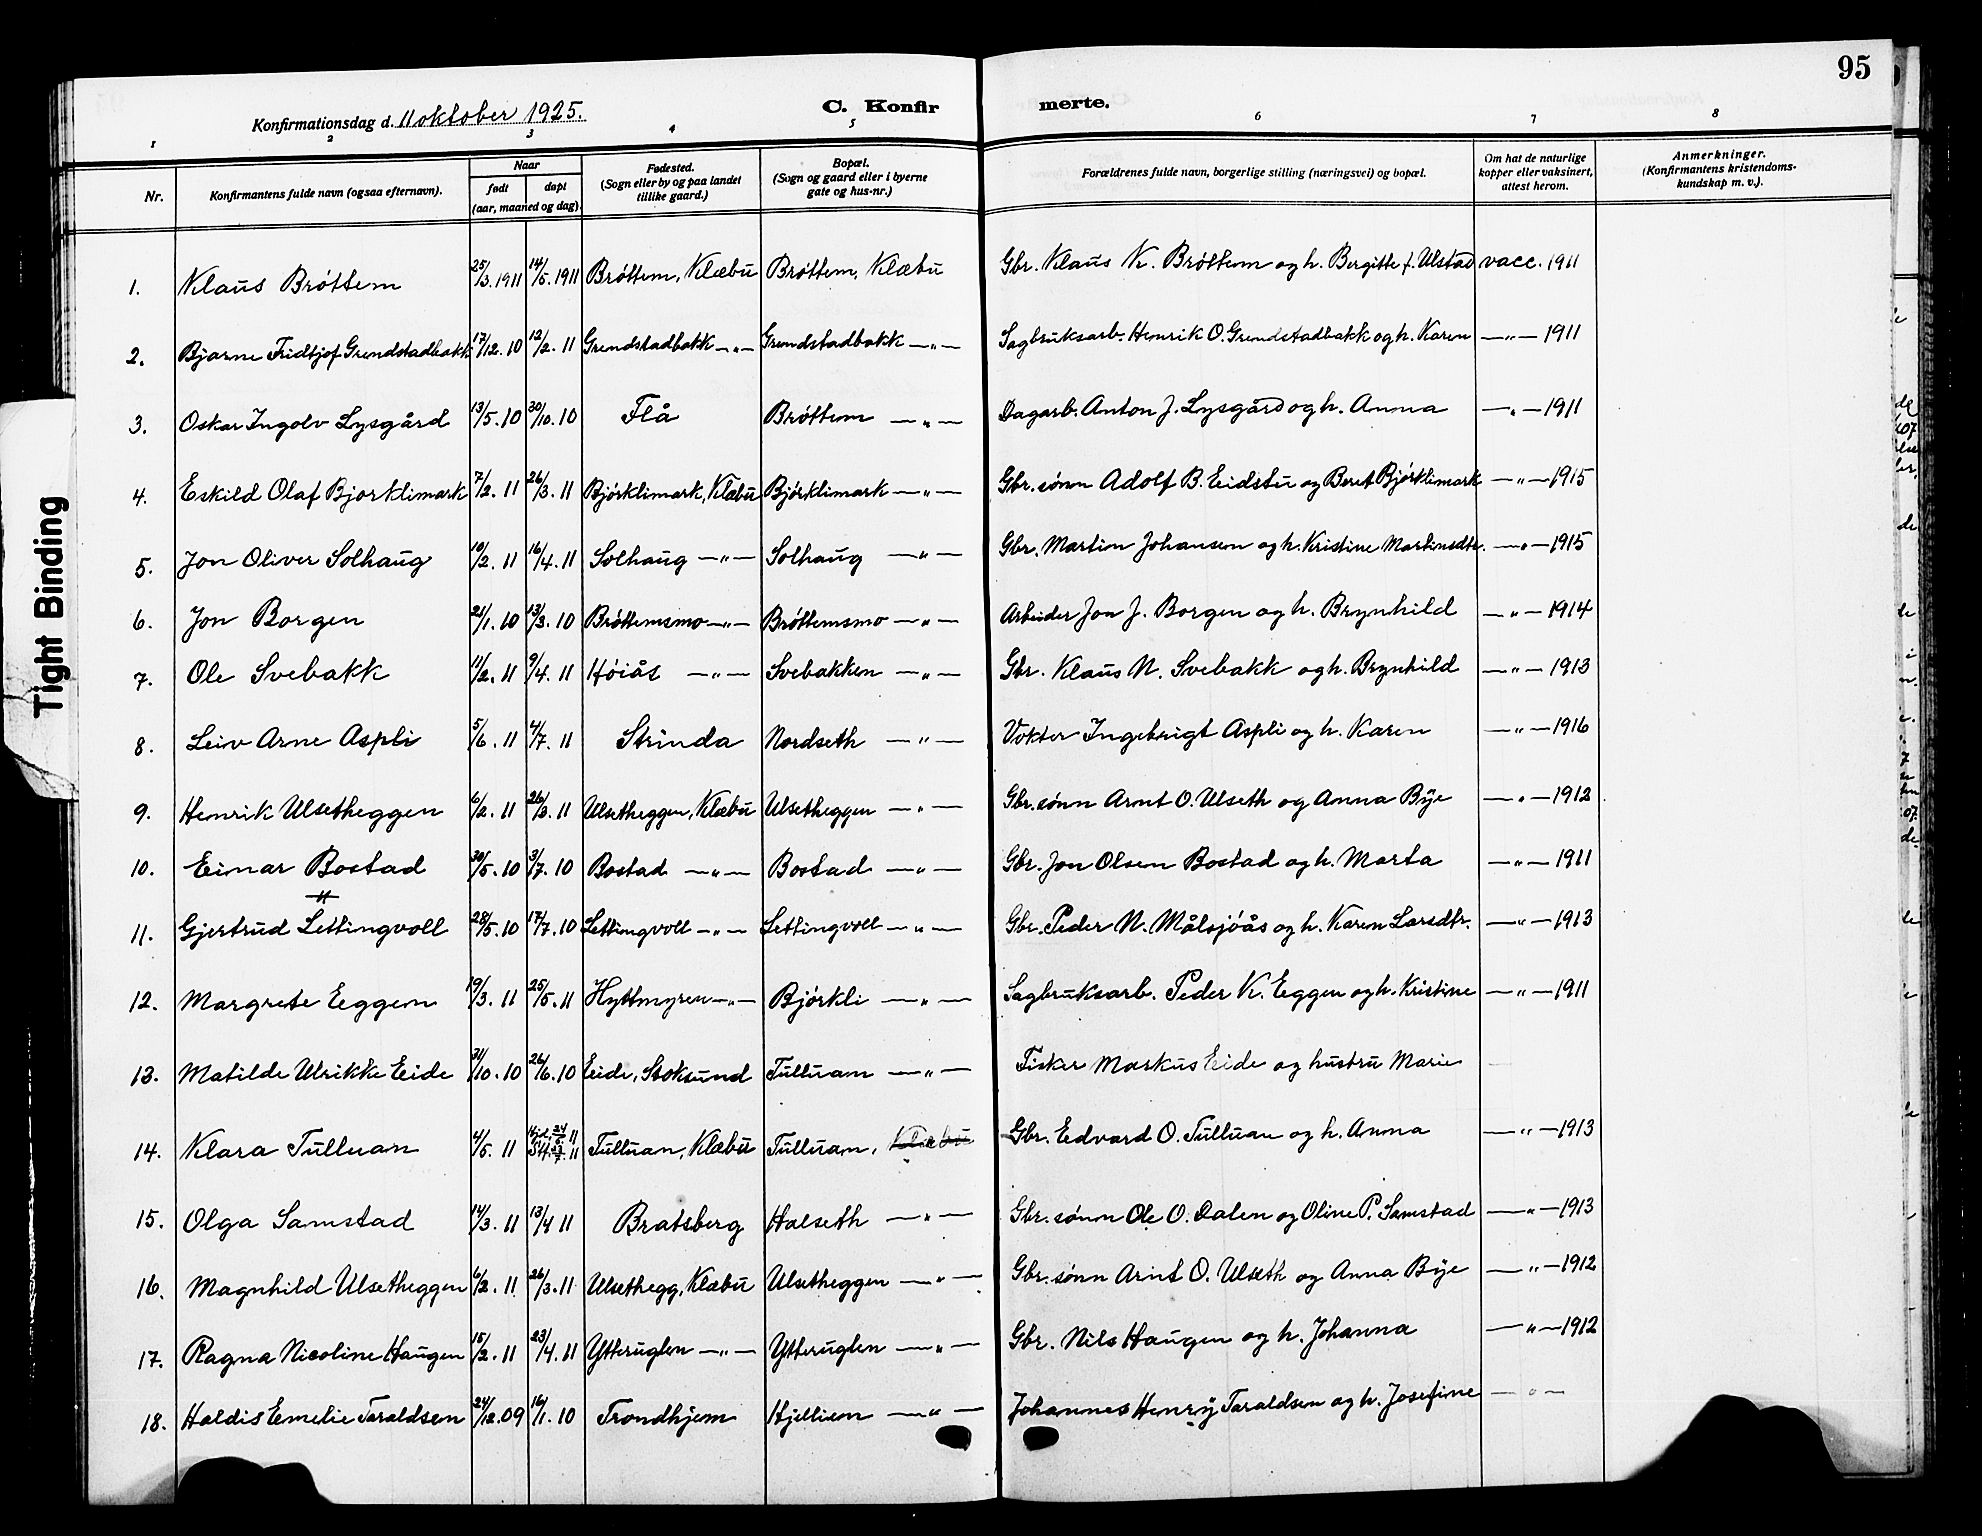 95
Konfirmationsdag d. 11 oktober 1925. C. Konfir merte.
1 2 3 4 5 6 7 8
Nr. Konfirmantens fulde navn (ogsaa efternavn). Naar født døpt (aar, maaned og dag). Fødested. (Sogn eller by og paa landet tillike gaard.) Bopæl. (Sogn og gaard eller i byerne gate og hus-nr.) Forældrenes fulde navn, borgerlige stilling (næringsvei) og bopæl. Om hat de naturlige kopper eller vaksinert, attest herom. Anmerkninger. (Konfirmantens kristendoms-kundskap m. v.).
1. Klaus Brøttem 25/3.1911 14/5.1911 Brøttem, Klæbu Brøttem, Klæbu Gbr. Klaus K. Brøttem og h. Bergitte f. Ulstad vacc. 1911
2. Bjarne Fridtjof Grendstadbakk 17/12.10 12/2.11 Grendstadbakk —„— Grendstadbakk —„— Sagbruksarb. Henrik O. Grendstadbakk og h. Karen —„— 1911
3. Oskar Ingolv Lysgård 13/5.10 30/10.10 Flå Brøttem —„— Dagarb. Anton J. Lysgård og h. Anna —„— 1911
4. Eskild Olaf Bjørklimark 7/2.11 26/3.11 Bjørklimark, Klæbu Bjørklimark —„— Gbr.sønn Adolf B. Eidstu og Beret Bjørklimark —„— 1915
5. Jon Oliver Solhaug 10/2.11 16/4.11 Solhaug —„— Solhaug —„— Gbr. Martin Johansen og h. Kristine Martinsdtr. —„— 1915
6. Jon Borgen 21/1.10 13/3.10 Brøttemsmo —„— Brøttemsmo —„— Arbeider Jon J. Borgen og h. Brynhild —„— 1914
7. Ole Svebakk 11/2.11 9/4.11 Høiås —„— Svebakken —„— Gbr. Klaus N. Svebakk og h. Brynhild —„— 1913
8. Leiv Arne Aspli 5/6.11 4/7.11 Strinda Nordseth —„— Vokter Ingebrigt Aspli og h. Karen —„— 1916
9. Henrik Ulsetheggen 6/2.11 26/3.11 Ulsetheggen, Klæbu Ulsetheggen —„— Gbr.sønn Arnt O. Ulseth og Anna Bye —„— 1912
10. Einar Bostad 30/5.10 3/7.10 Bostad —„— Bostad —„— Gbr. Jon Olsen Bostad og h. Marta —„— 1911
11. Gjertrud Lettingvoll 28/5.10 17/7.10 Lettingvoll —„— Lettingvoll —„— Gbr. Peder N. Målsjøås og h. Karen Larsdtr. —„— 1913
12. Margrete Eggen 19/3.11 25/5.11 Hyttmyren —„— Bjørkli —„— Sagbruksarb. Peder K. Eggen og h. Kristine —„— 1911
13. Matilde Ulrikke Eide 31/10.10 26/6.10 Eide, Stoksund Tulluan —„— Fisker Markus Eide og hustru Marie
14. Klara Tulluan 4/5.11 Tulluan, Klæbu Tulluan, Klæbu Gbr. Edvard O. Tulluan og h. Anna —„— 1913
15. Olga Samstad 14/3.11 13/4 11 Bratsberg Halseth —„— Gbr.sønn Ole O. Dalen og Oline P. Samstad —„— 1913
16. Magnhild Ulsetheggen 6/2.11 26/3.11 Ulsethegg, Klæbu Ulsetheggen —„— Gbr.sønn Arnt O. Ulseth og Anna Bye —„— 1912
17. Ragna Nicoline Haugen 15/2.11 23/4.11 Ytteruglen —„— Ytteruglen —„— Gbr. Nils Haugen og h. Johanna —„— 1912
18. Haldis Emelie Taraldsen 24/12.09 16/1.10 Trondhjem Hjellien —„— Johannes Henry Taraldsen og h. Josefine —„—
Tight Binding